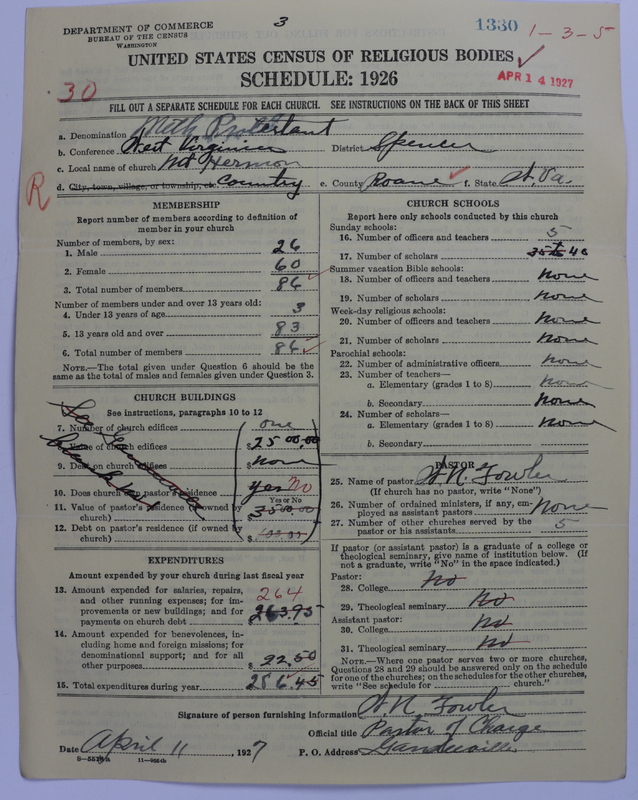 DEPARTMENT OF COMMERCE
BUREAU OF THE CENSUS
WASHINGTON
3
1330
1-3-5
UNITED STATES CENSUS OF RELIGIOUS BODIES
SCHEDULE: 1926
APR 14 1927
30
FILL OUT A SEPARATE SCHEDULE FOR EACH CHURCH. SEE INSTRUCTIONS ON THE BACK OF THIS SHEET
a. Denomination Meth Protestant
b. Conference West Virginia District Spencer
c. Local name of church Mt Hermon
R
d. City, town, village, or township, or Country e. County Roane f. State W. Va.
MEMBERSHIP
Report number of members according to definition of member in your church
Number of members, by sex:
1. Male 26
2. Female 60
3. Total number of members 86
Number of members under and over 13 years old:
4. Under 13 years of age 3
5. 13 years old and over 83
6. Total number of members 86
NOTE.—The total given under Question 6 should be
same as the total of males and females given under Question 3.
CHURCH BUILDINGS
See instructions, paragraphs 10 to 12
7. Number of church edifices one
8. Value of church edifices $2500.00
9. Debt on church edifices $none
10. Does church own pastor's residence yes No
Yes or No
11. Value of pastor's residence (if owned by
church) $3500.00
12. Debt on pastor's residence (if owned by
church) $
EXPENDITURES
Amount expended by your church during last fiscal year
13. Amount expended for salaries, repairs,
and other running expenses; for im-
provements or new buildings; and for
payments on church debt 264
263.95
14. Amount expended for benevolences, in-
cluding home and foreign missions; for
denominational support; and for all
other purposes $22.50
15. Total expenditures during year 286.45
CHURCH SCHOOLS
Report here only schools conducted by this church
Sunday schools:
16. Number of officers and teachers 5
17. Number of scholars 35 to 40
Summer vacation Bible schools:
18. Number of officers and teachers none
19. Number of scholars none
Week-day religious schools:
20. Number of officers and teachers none
21. Number of scholars none
Parochial schools:
22. Number of administrative officers none
23. Number of teachers—
a. Elementary (grades 1 to 8) none
b. Secondary none
24. Number of scholars—
a. Elementary (grades 1 to 8) none
b. Secondary
PASTOR
25. Name of pastor W. N. Fowler
(If church has no pastor, write "None")
26. Number of ordained ministers, if any, em-
ployed as assistant pastors none
27. Number of other churches served by the
pastor or his assistants 5
If pastor (or assistant pastor) is a graduate of a college or
theological seminary, give name of institution below. (If
not a graduate, write "No" in the space indicated.)
Pastor:
28. College No
29. Theological seminary No
Assistant pastor:
30. College No
31. Theological seminary No
NOTE.—Where one pastor serves two or more churches,
Questions 28 and 29 should be answered only on the schedule
for one of the churches; on the schedules for the other churches,
write "See schedule for church."
Signature of person furnishing information W. N. Fowler
Official title Pastor of Charge
Date April 11, 1927 P. O. Address Gandeeville
11-9054b